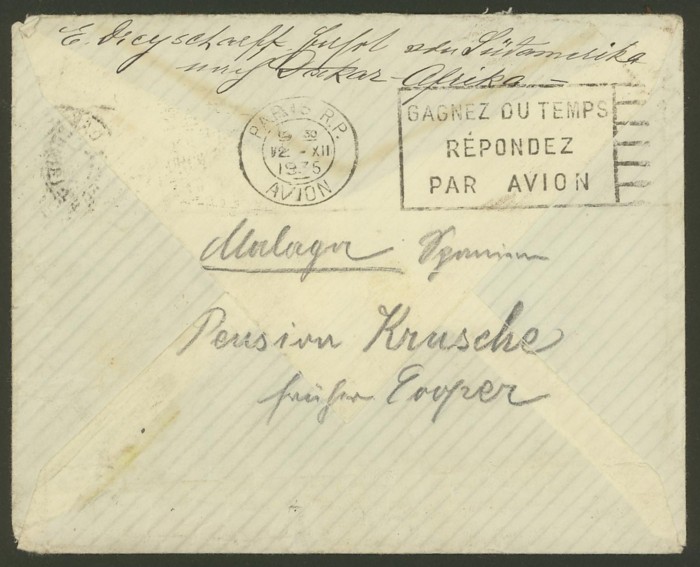 E. Dreyschaeff
von Südamerika
nach Dakar-Afrika
PARIS R.P.
1935
AVION
GAGNEZ DU TEMPS
RÉPONDEZ
PAR AVION
Malaga Spanien
Pension Krusche
früher Cooper